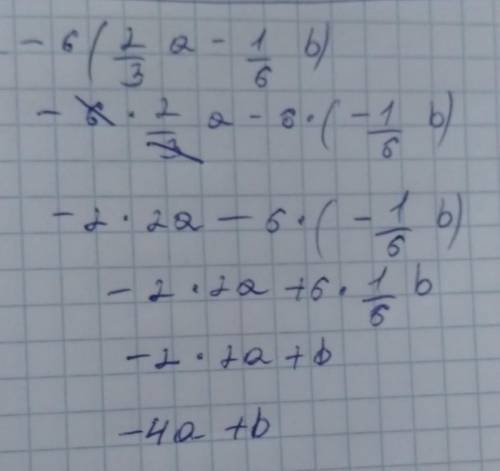 - 6 ( 2/3 a - 1/6 b)
- 6 · 2/3 a - 6 · ( - 1/6 b)
- 2 · 2a - 6 · ( - 1/6 b)
- 2 · 2a + 6 · 1/6 b
- 2 · 2a + b
-4a + b